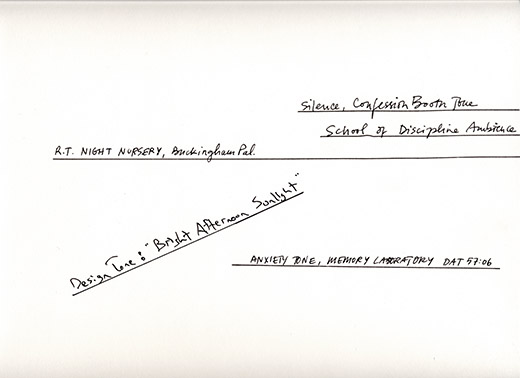 Silence, Confession Booth Tone
School of Discipline Ambience
R.T. NIGHT NURSERY, Buckingham Pal.
Design Tone: "Bright Afternoon Sunlight"
ANXIETY TONE, MEMORY LABORATORY DAT 57:06